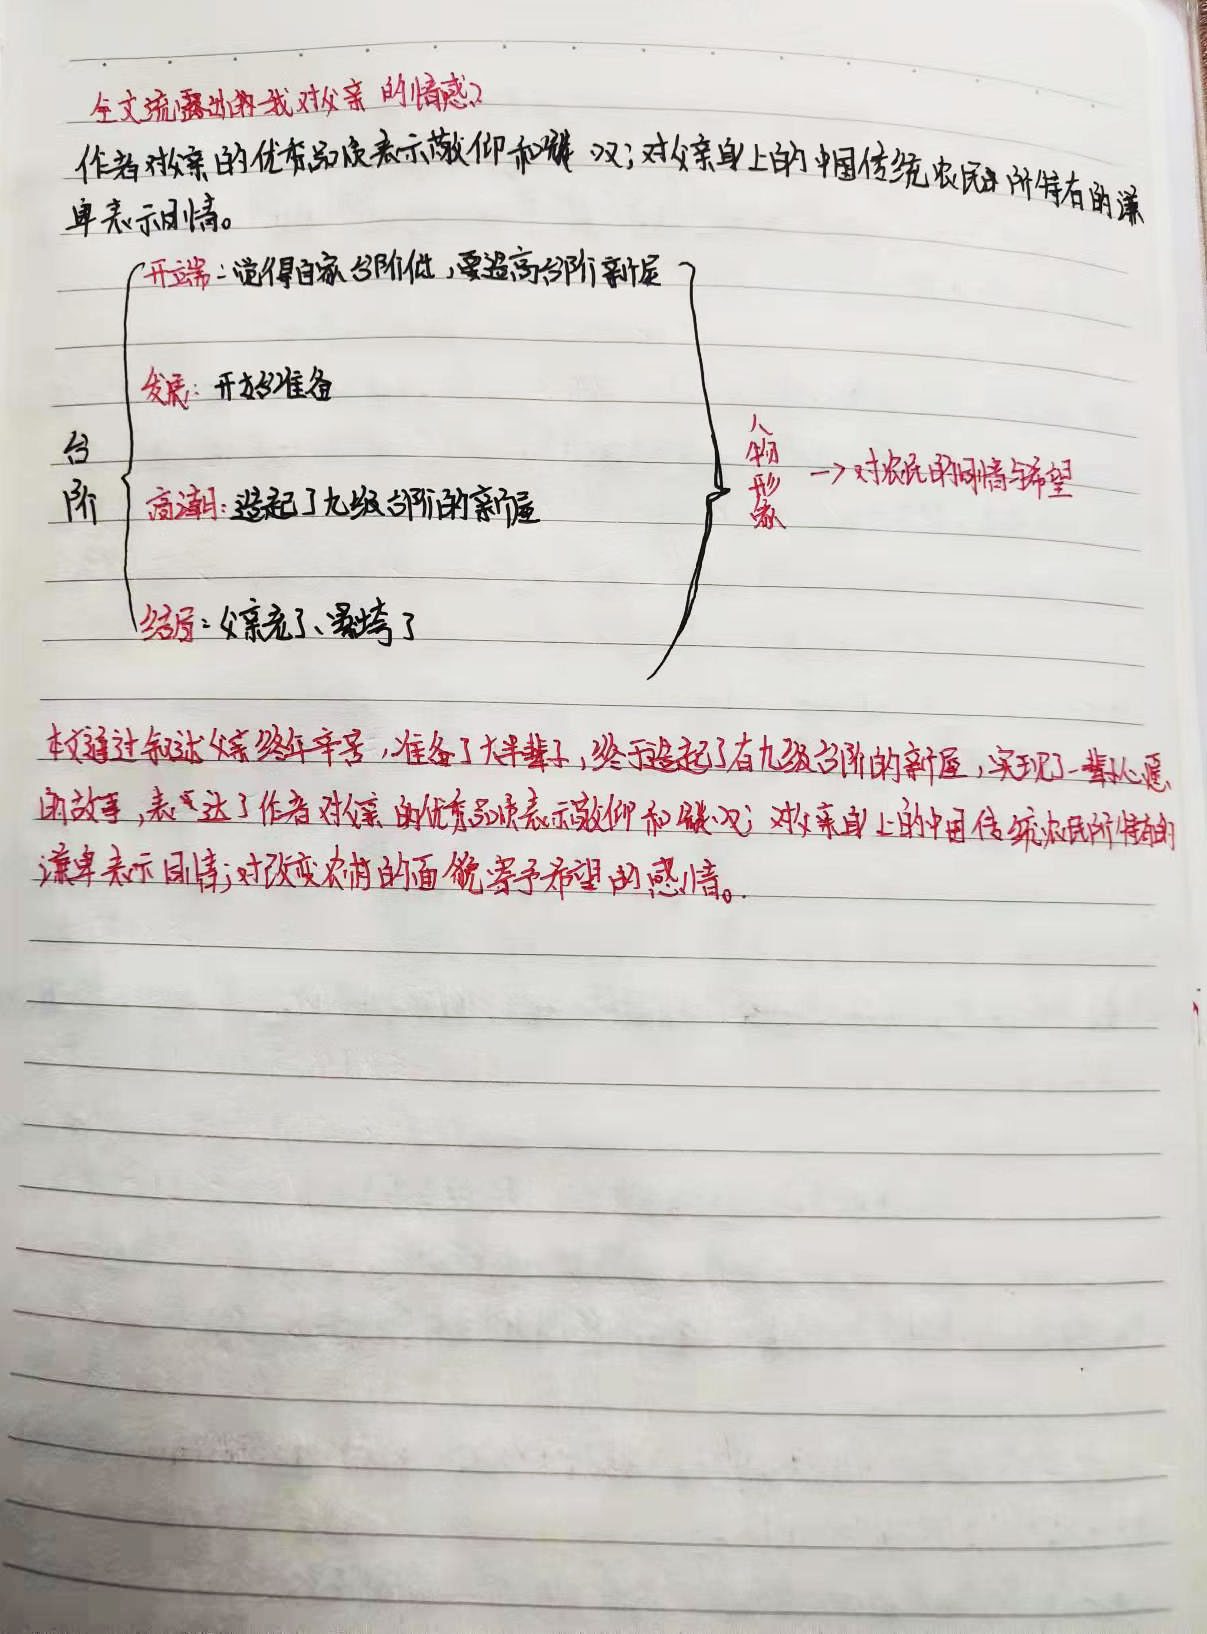 全文流露出的我对父亲的情感?
作者对父亲的优秀品质表示敬仰和赞叹;对父亲身上的中国传统农民所特有的谦
卑表示同情。
开端:觉得自家台阶低,要造高台阶新屋
发展:开始准备
台阶
高潮:造起了九级台阶的新屋
结局:父亲老了、累垮了
人物形象
→对农民的同情与希望
本文通过叙述父亲终年辛苦,准备了大半辈子,终于造起了有九级台阶的新屋,实现了一辈子心愿
的故事,表达了作者对父亲的优秀品质表示敬仰和赞叹;对父亲身上的中国传统农民所特有的
谦卑表示同情;对改变农村的面貌寄予希望的感情。